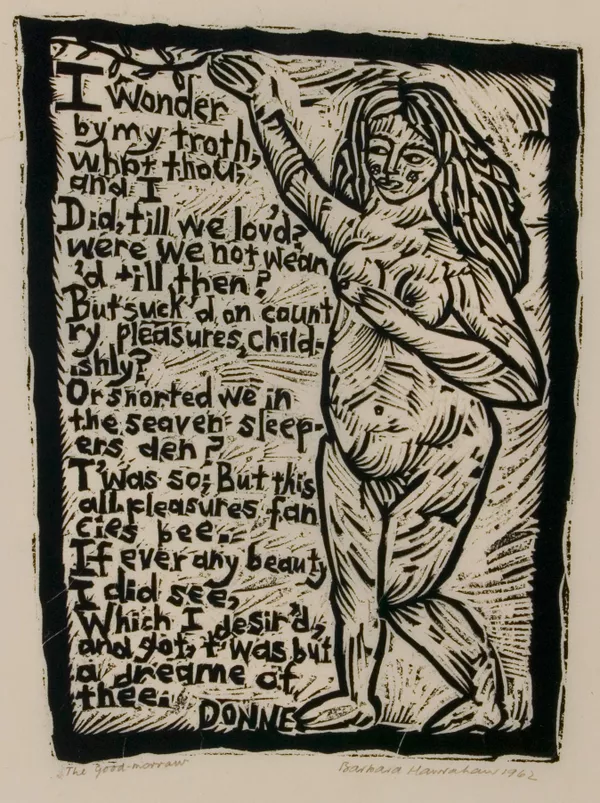 I wonder
by my troth,
what thou;
and I
Did, till we lov'd?
were we not wean
'd till then?
But suck'd on count
ry pleasures, child-
ishly?
Or snorted we in
the seaven sleep-
ers den?
T'was so; But this
all pleasures fan
cies bee.
If ever any beauty
I did see,
Which I desir'd,
and got, t'was but
a dreame of
thee.
DONNE
The good-morrow
Barbara Hanrahan 1962